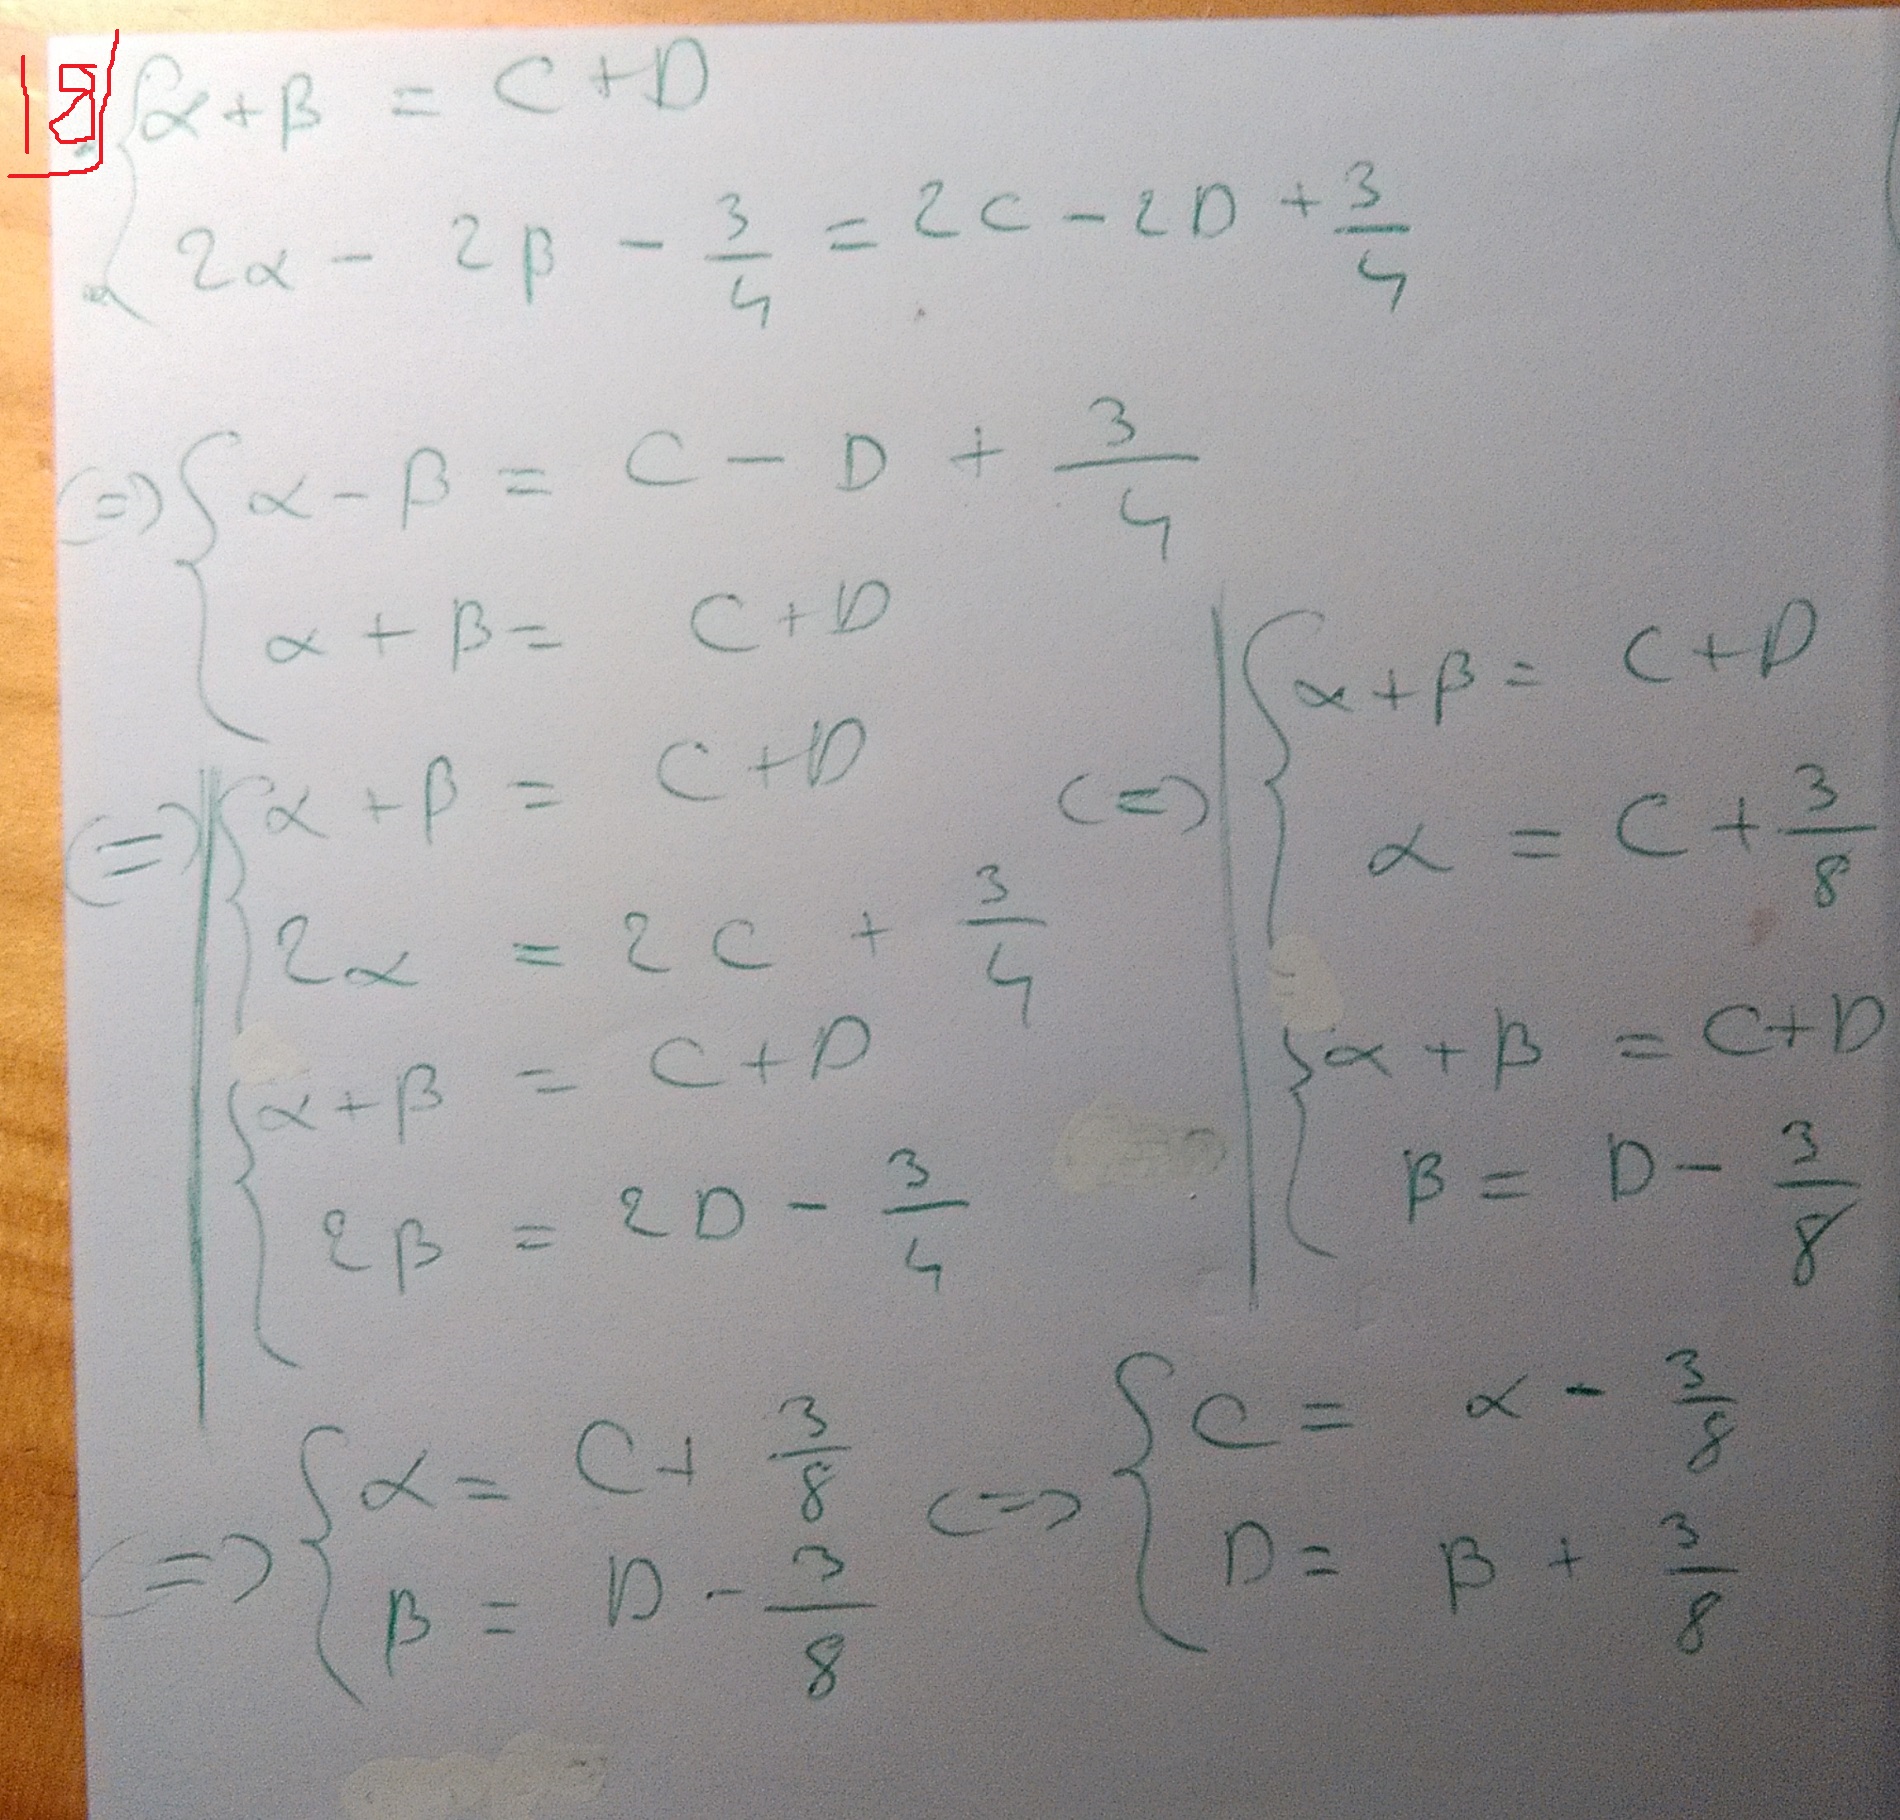 18/
{ α + β = C + D
2α - 2β - 3/4 = 2C - 2D + 3/4
(=) { α - β = C - D + 3/4
α + β = C + D
(=) | { α + β = C + D
2α = 2C + 3/4
{ α + β = C + D
2β = 2D - 3/4
(=) | { α + β = C + D
α = C + 3/8
{ α + β = C + D
β = D - 3/8
(=) { α = C + 3/8
β = D - 3/8
(=) { C = α - 3/8
D = β + 3/8